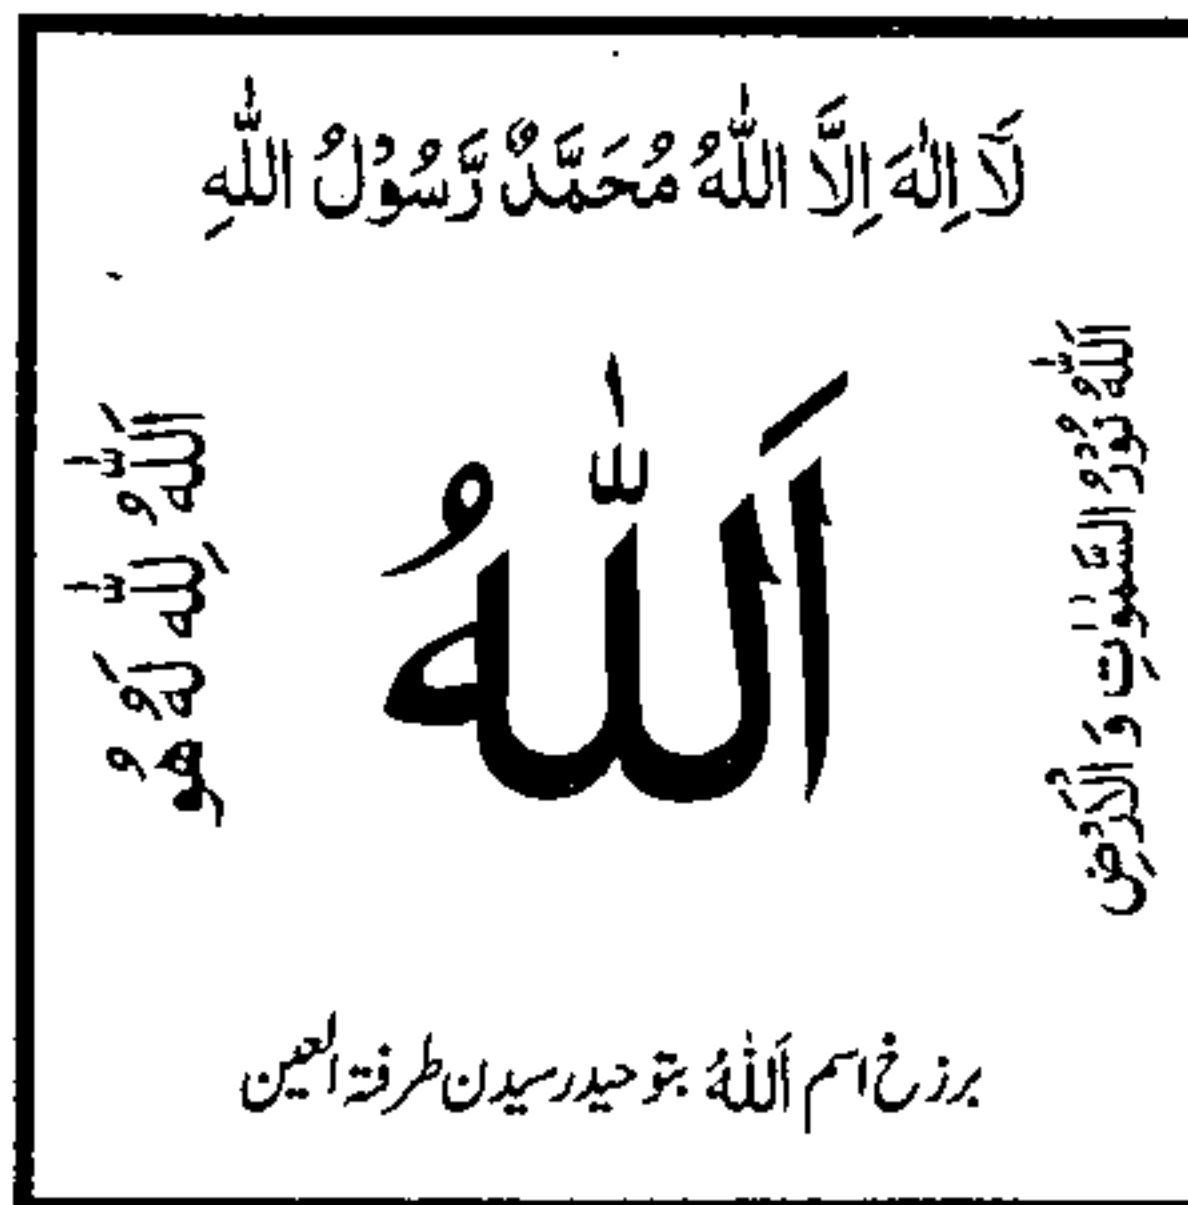 لَآ اِلٰهَ اِلَّا اللّٰهُ مُحَمَّدٌ رَّسُوْلُ اللّٰهِ
اَللّٰهُ نُوْرُ السَّمٰوٰتِ وَ الْاَرْضِ
اَللّٰهُ
اَللّٰهُ لِلّٰه لَهُ هُو
برزخ اسم اَللّٰهُ بتوحید رسیدن طرفۃ العین